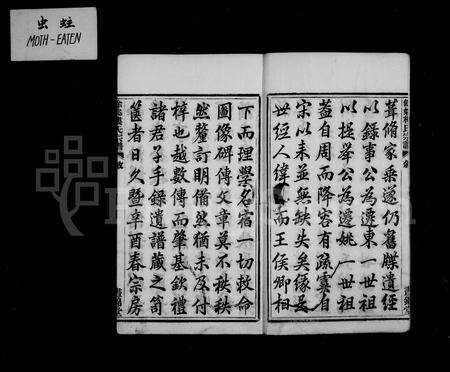 虫蛀
MOTH-EATEN
葺脩家乘遂仍舊牒遺經
以錄事公為遷東一世祖
以提舉公為遷姚一世祖
蓋自周而降容有疏寘自
宋以來並無缺失矣緣是
世經人緯而王侯卿相
下而理學名宿一切敕命
圖像碑傳文章莫不秩秩
然釐訂明備然猶未及付
梓也越數傳而肇基欽禮
諸君子手錄遺譜藏之笥
篋者日久暨辛酉春宗房